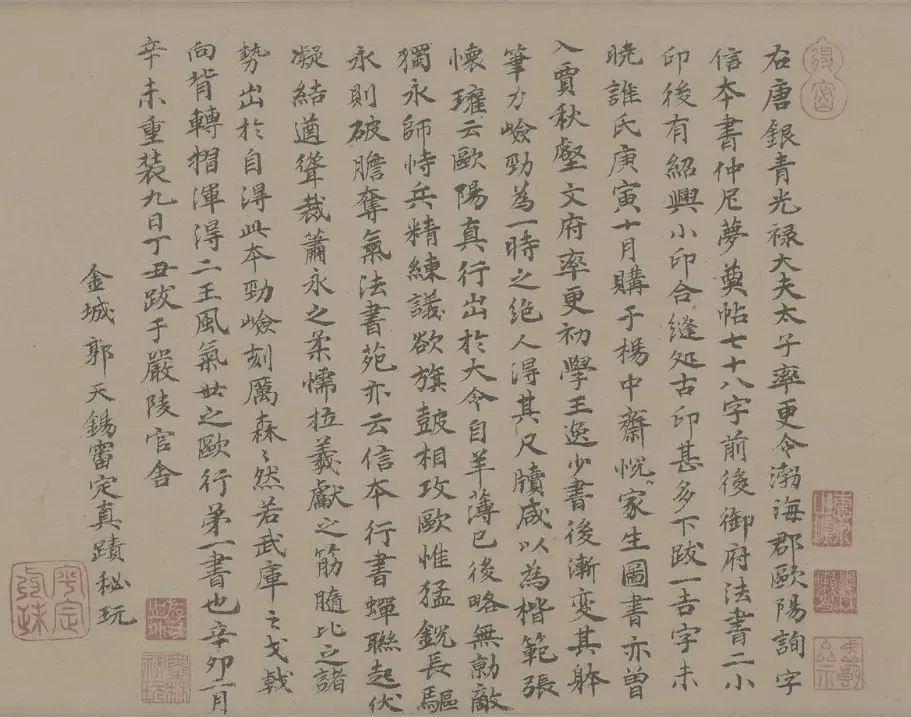 右唐銀青光禄大夫太子率更令渤海郡歐陽詢字
信本書仲尼夢奠帖七十八字前後御府法書二小
印後有紹興小印合縫処古印甚多下跋一吉字未
曉誰氏庚寅十月購于楊中齋悦家生圖書亦曽
入賈秋壑文府率更初學王逸少書後漸變其躰
筆力嶮勁為一時之絶人得其尺牘咸以為楷範張
懷瓘云歐陽真行出於大令自羊薄已後略無勍敵
獨永師恃兵精練議欲旗鼓相攻歐惟猛鋭長驅
永則破膽奪氣法書苑亦云信本行書蟬聯起伏
凝結遒聳裁蕭永之柔懦拉羲獻之筋髓比之諸
勢出於自得此本勁嶮刻厲森〻然若武庫之戈戟
向背轉摺渾得二王風氣世之歐行弟一書也辛卯一月
辛未重裝九日丁丑跋于嚴陵官舎
金城郭天錫審定真蹟秘玩